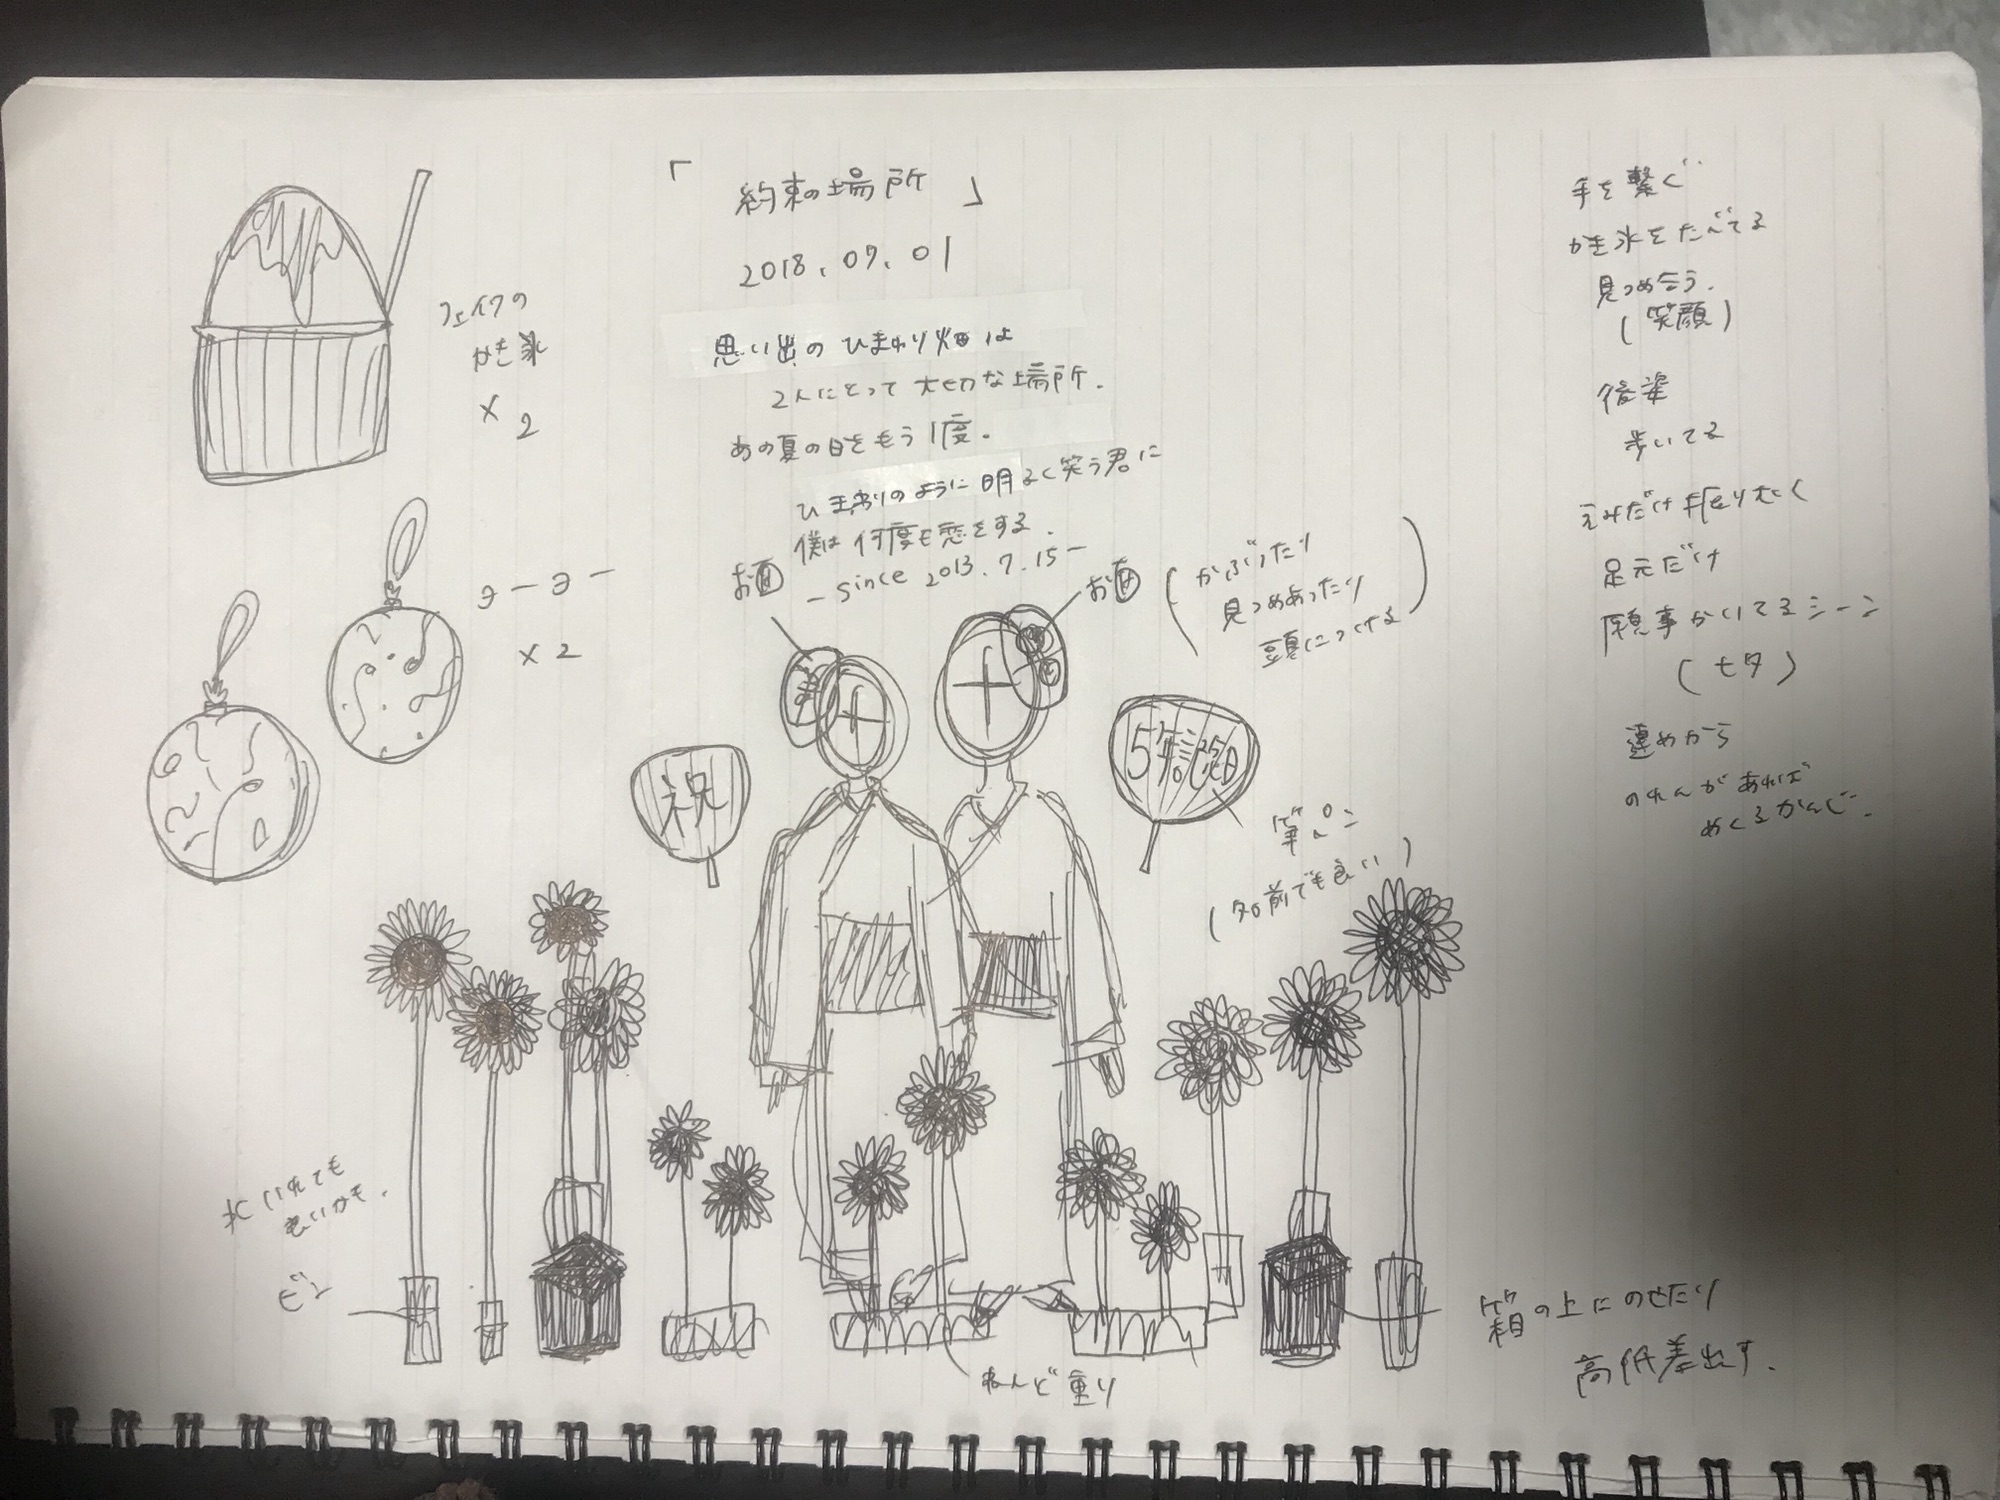 「約束の場所」
2018.07.01
思い出のひまわり畑は
2人にとって大切な場所.
あの夏の日をもう1度.
ひまわりのように明るく笑う君に
僕は何度も恋をする.
- since 2013.7.15 -
フェイクの
かき氷
× 2
ヨーヨー
× 2
お面
お面
(かぶったり
見つめあったり
頭につける)
祝
5年記念日
筆ペン
(名前でも良い)
手を繋ぐ
かき氷をたべてる
見つめ合う.
(笑顔)
後姿
歩いてる
足元だけ
願い事かいてるシーン
(七夕)
遠めから
のれんがあれば
めくるかんじ.
水いれても
良いかも.
ビン
ねんど重り
箱の上にのせたり
高低差出す.